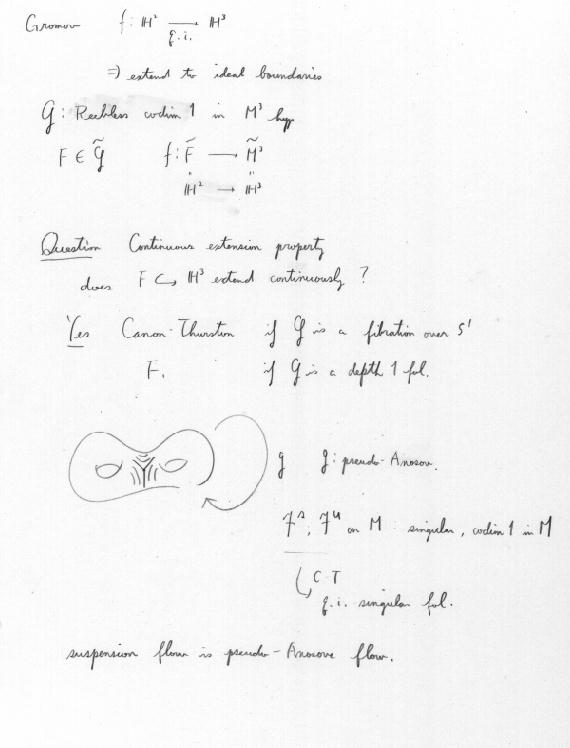 Gromov f: ℍ² ⟶ ℍ³
q.i.
⇒ extend to ideal boundaries
G: Reebless codim 1 in M³ hyp
F ∈ G̃ f: F̃ ⟶ M̃³
ℍ² → ℍ³
Question Continuous extension property
does F ↪ ℍ³ extend continuously ?
Yes Canon-Thurston if G is a fibration over S¹
F. if G is a depth 1 fol.
g g: pseudo-Anosov.
𝓕ˢ, 𝓕ᵘ on M : singular, codim 1 in M
C-T
q.i. singular fol.
suspension flow is pseudo-Anosove flow.